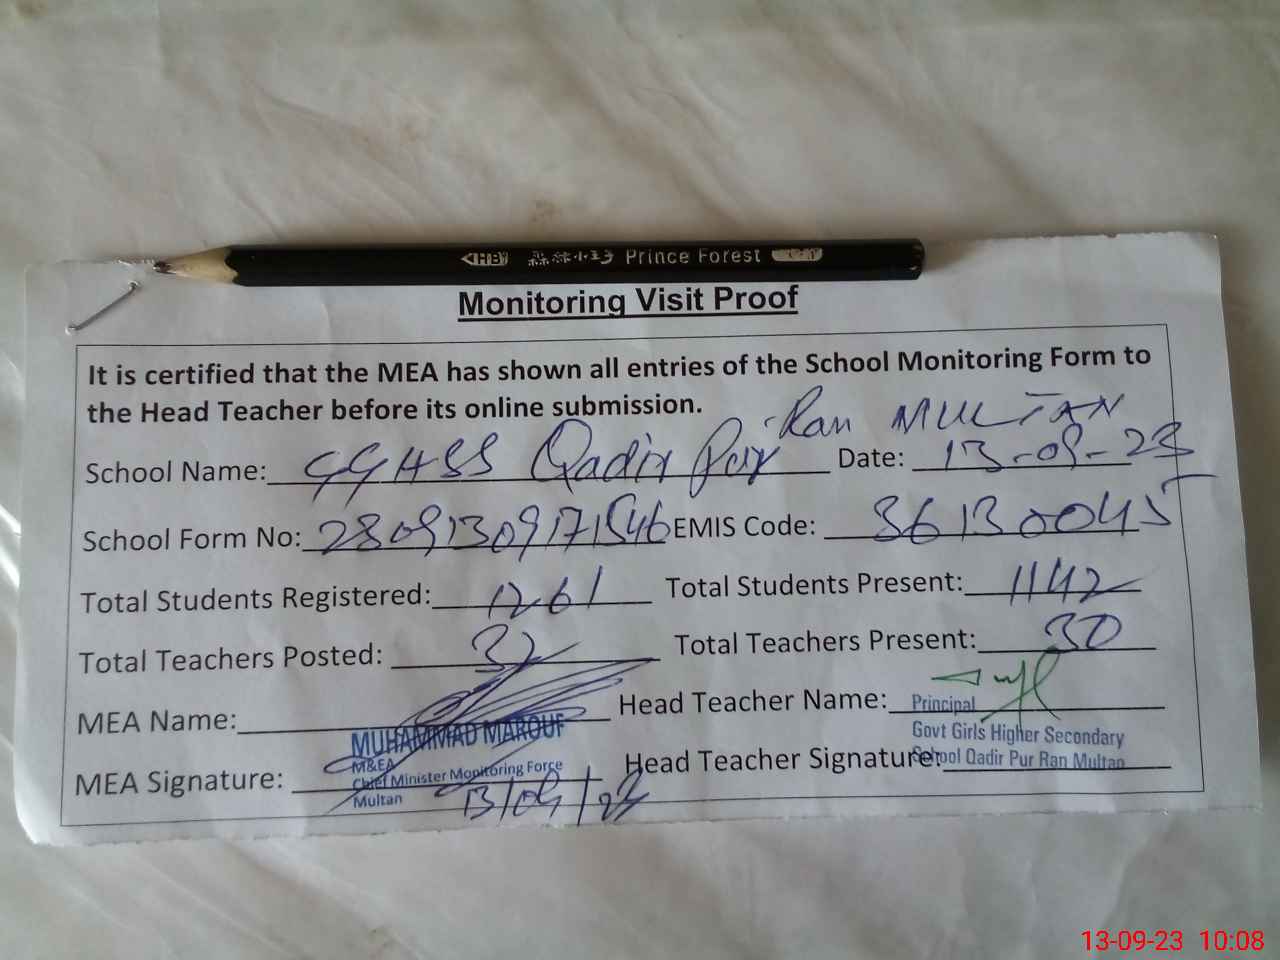 HB 森林小王子 Prince Forest
Monitoring Visit Proof
It is certified that the MEA has shown all entries of the School Monitoring Form to
the Head Teacher before its online submission.
School Name: GGHSS Qadir Pur Ran MULTAN Date: 13-09-23
School Form No: 28091309171546 EMIS Code: 36130045
Total Students Registered: 1261 Total Students Present: 1142
Total Teachers Posted: 32 Total Teachers Present: 30
MEA Name: Head Teacher Name:
MUHAMMAD MAROUF
M&EA
Chief Minister Monitoring Force
Multan
Principal
Govt Girls Higher Secondary
School Qadir Pur Ran Multan
MEA Signature: Head Teacher Signature:
13/09/23
13-09-23 10:08